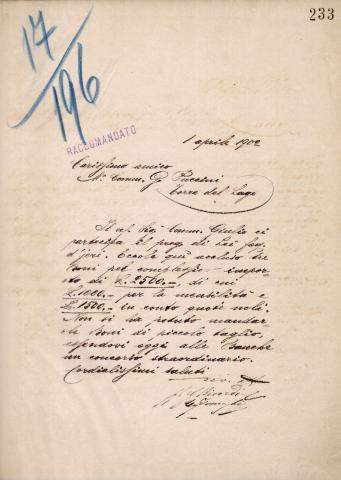 233
17/196
RACCOMANDATO
1 aprile 1902
Carissimo amico
Mo. Comm. G Puccini
Torre del Lago
Il ns. Sig. Comm. Giulio ci
partecipa il preg. di Lei fog.
d'jeri. Eccole qui accluso tre
boni pel complessivo impor-
to di L. 2500.-, di cui
L. 1000.- per la mensilità e
L. 1500.- in conto quote noli.
Non si ha potuto mandar-
le boni di piccolo taglio,
essendovi oggi alle Banche
un concorso straordinario.
Cordialissimi saluti
G Ricordi